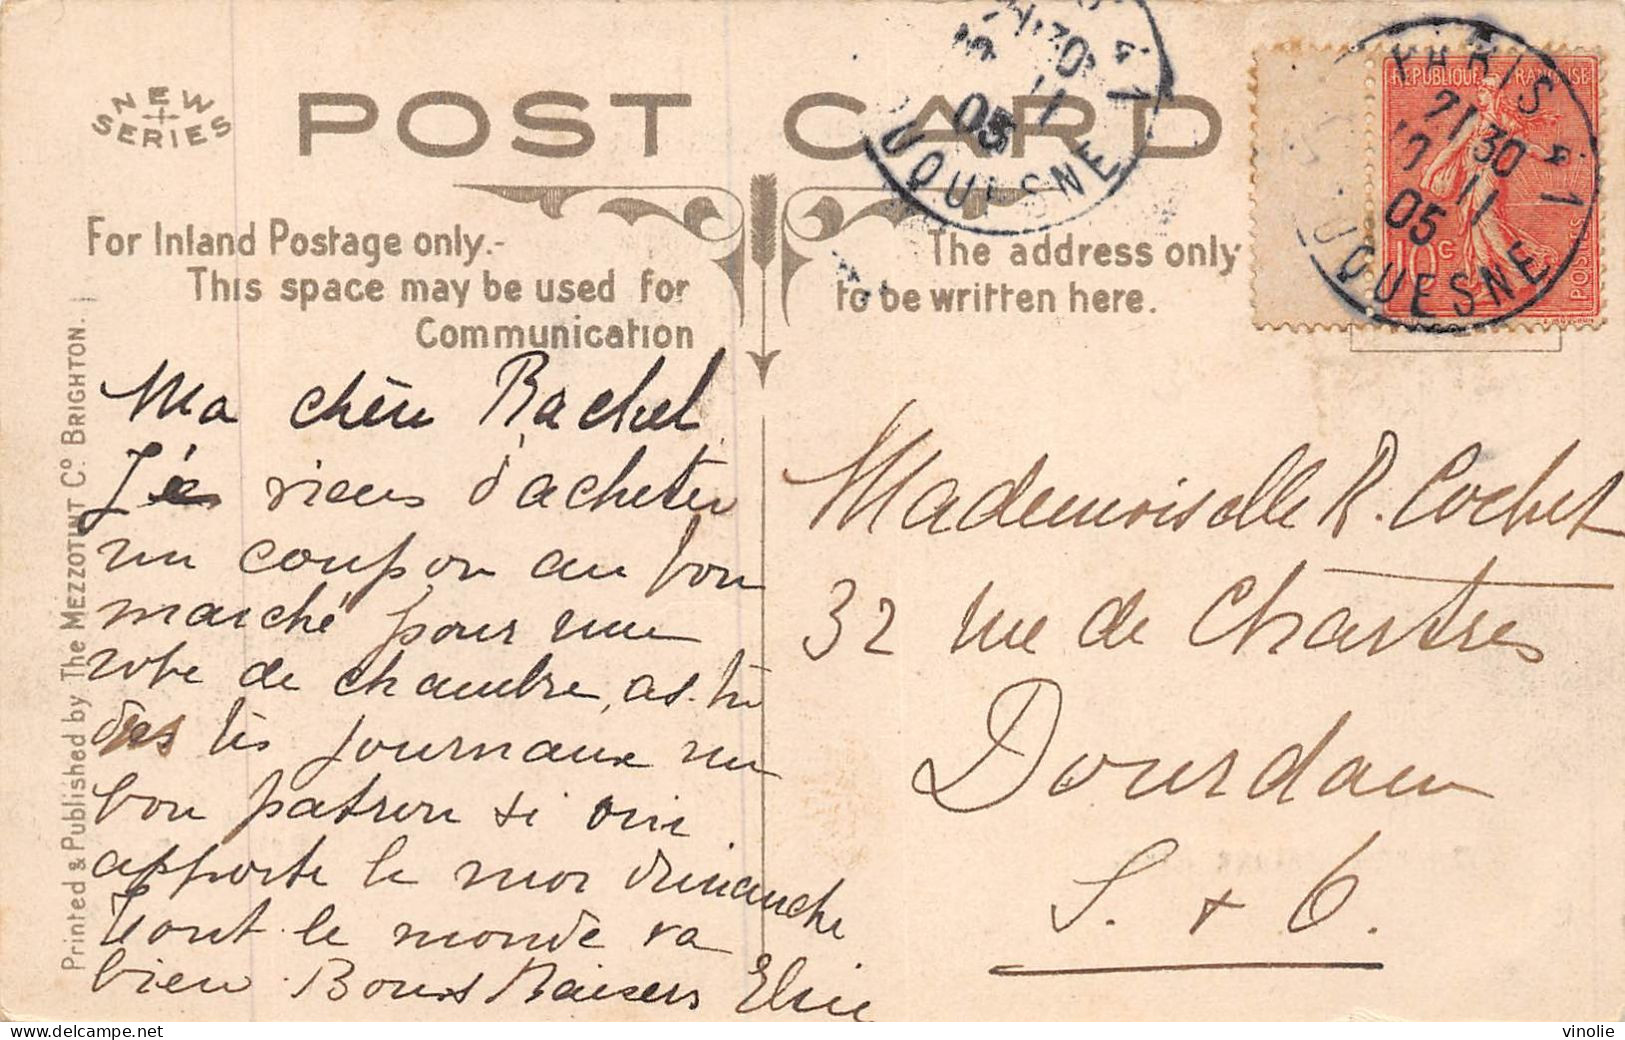 NEW
SERIES
POST CARD
For Inland Postage only.-
This space may be used for
Communication
The address only
to be written here.
Printed & Published by The MEZZOTINT Cº. BRIGHTON.
Ma chère Rachel
Je viens d'acheter
un coupon au bon
marché pour une
robe de chambre, as-tu
des tes journaux un
bon patron si oui
apporte le moi dimanche
tout le monde va
bien. Bons Baisers
Mademoiselle R. Cochet
32 rue de Chartres
Dourdan
S. & O.
REPUBLIQUE FRANÇAISE
10c
POSTES
PARIS 41
7 11 30
11
05
DUQUESNE
11
05
DUQUESNE
vinolie